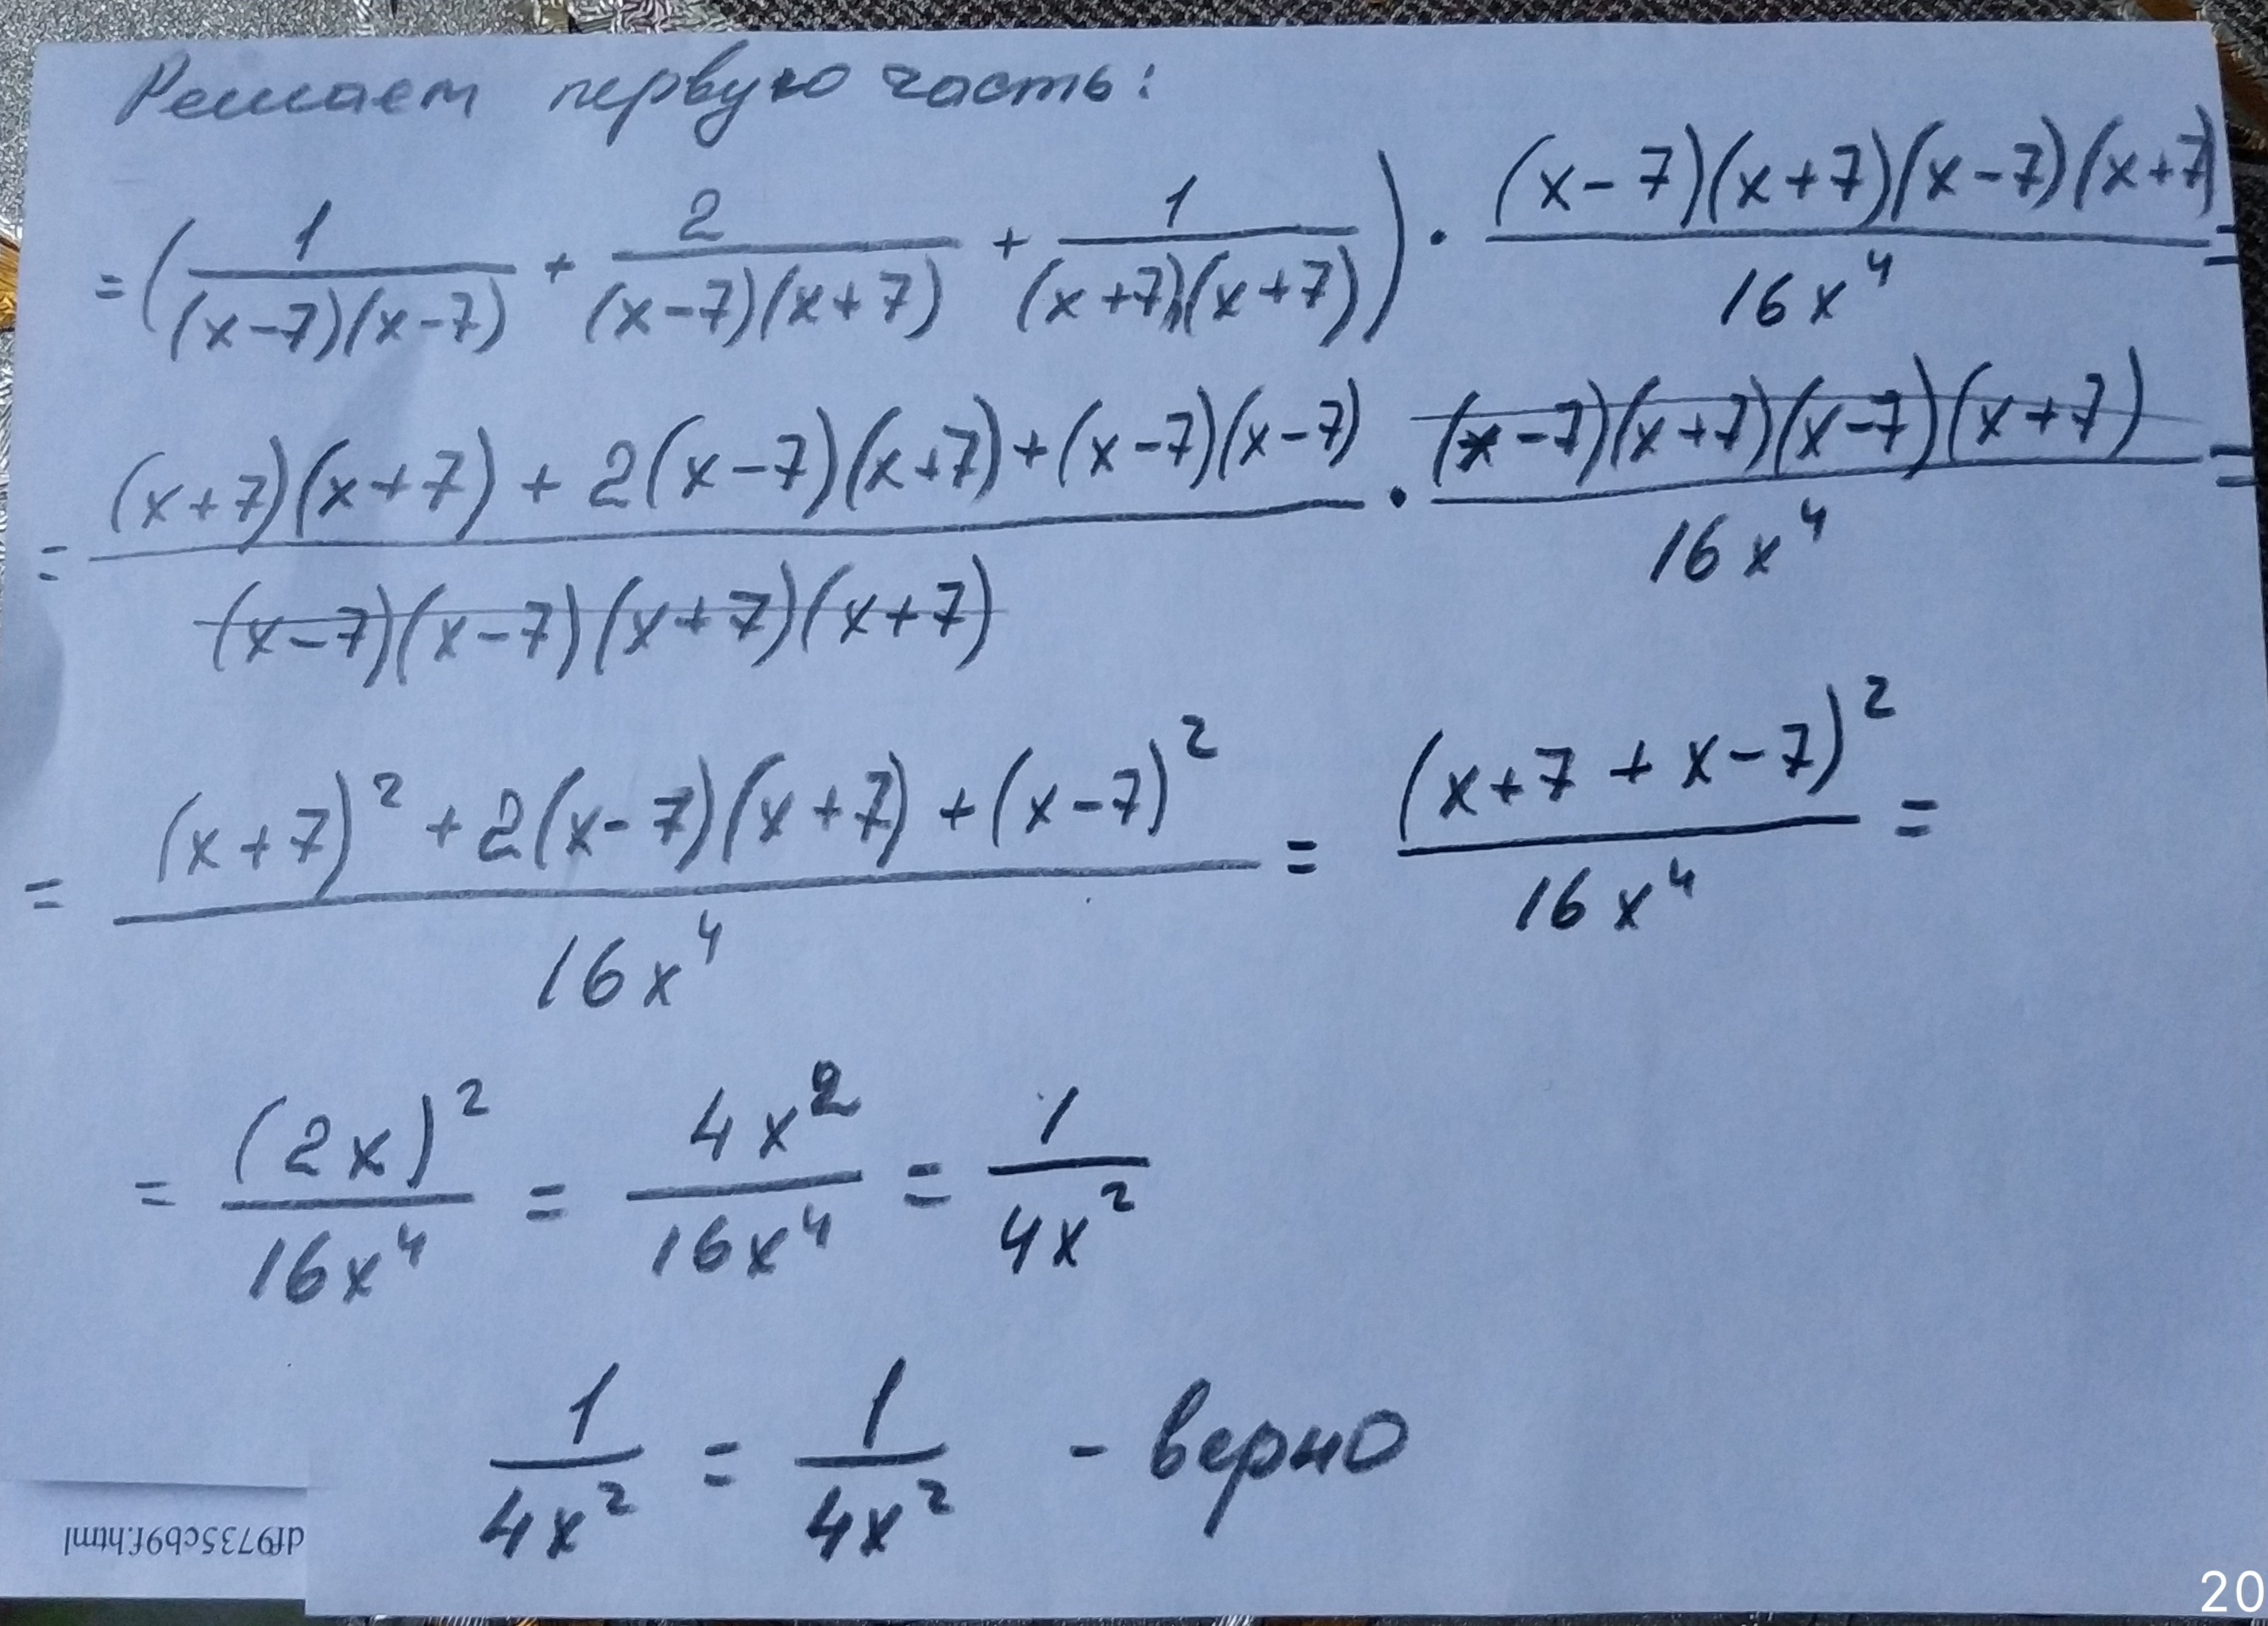 Решаем первую часть:
= (1/((x-7)(x-7)) + 2/((x-7)(x+7)) + 1/((x+7)(x+7))) · ((x-7)(x+7)(x-7)(x+7))/(16x⁴) =
= ((x+7)(x+7) + 2(x-7)(x+7) + (x-7)(x-7))/((x-7)(x-7)(x+7)(x+7)) · ((x-7)(x+7)(x-7)(x+7))/(16x⁴) =
= ((x+7)² + 2(x-7)(x+7) + (x-7)²)/(16x⁴) = (x+7+x-7)²/(16x⁴) =
= (2x)²/(16x⁴) = 4x²/(16x⁴) = 1/(4x²)
1/(4x²) = 1/(4x²) - верно
df9735cb9f.html
20